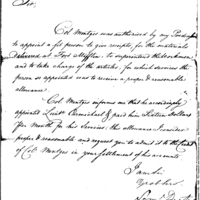 Sir,
Col. Mentges was authorised by my Predecessor
to appoint a fit person to give receipts for the materials
delivered at Fort Mifflin, to superintend the workmen
and take charge of the articles, for which services the
person so appointed was to receive a proper & reasonable
allowance.
Col. Mentges informs me that he accordingly
appointed Lieut. Carmichael & paid him Sixteen Dollars
per Month for his services; this allowance I consider
proper & reasonable and request you to admit it to the Credit
of Col. Mentges in your settlement of his accounts
I am Sir
Your obt. serv.